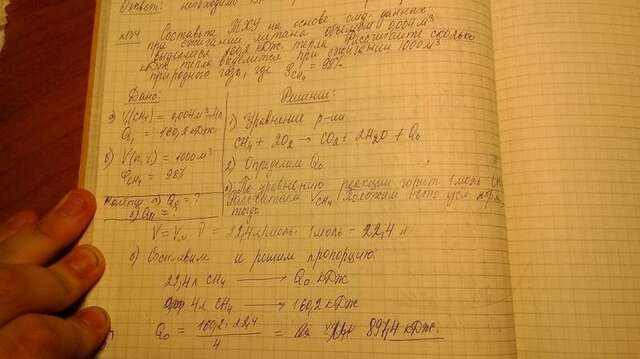 Ответ: необходимо
Составьте ТХУ на основе след. данных:
при сжигании метана объёмом 0,004 м³
выделилось 160,2 кДж тепла. Рассчитайте сколько
кДж тепла выделится при сжигании 1000 м³
природного газа, где φCH₄ = 98%
Дано:
Решение:
а) V(CH₄) = 0,004 м³ = 4л
Q₁ = 160,2 кДж
б) V(п.г.) = 1000 м³
φCH₄ = 98%
Найти: а) Q₀ = ?
1) Уравнение р-ии
CH₄ + 2O₂ → CO₂ + 2H₂O + Q₀
2) Определим Q₀
По уравнению реакции горит 1 моль
тогда
V = Vм · ν = 22,4 л/моль · 1 моль = 22,4 л
б) Составим и решим пропорцию:
22,4 л CH₄ → Q₀ кДж
4л CH₄ → 160,2 кДж
Q₀ = 160,2 · 22,4 / 4 = 897,4 кДж.